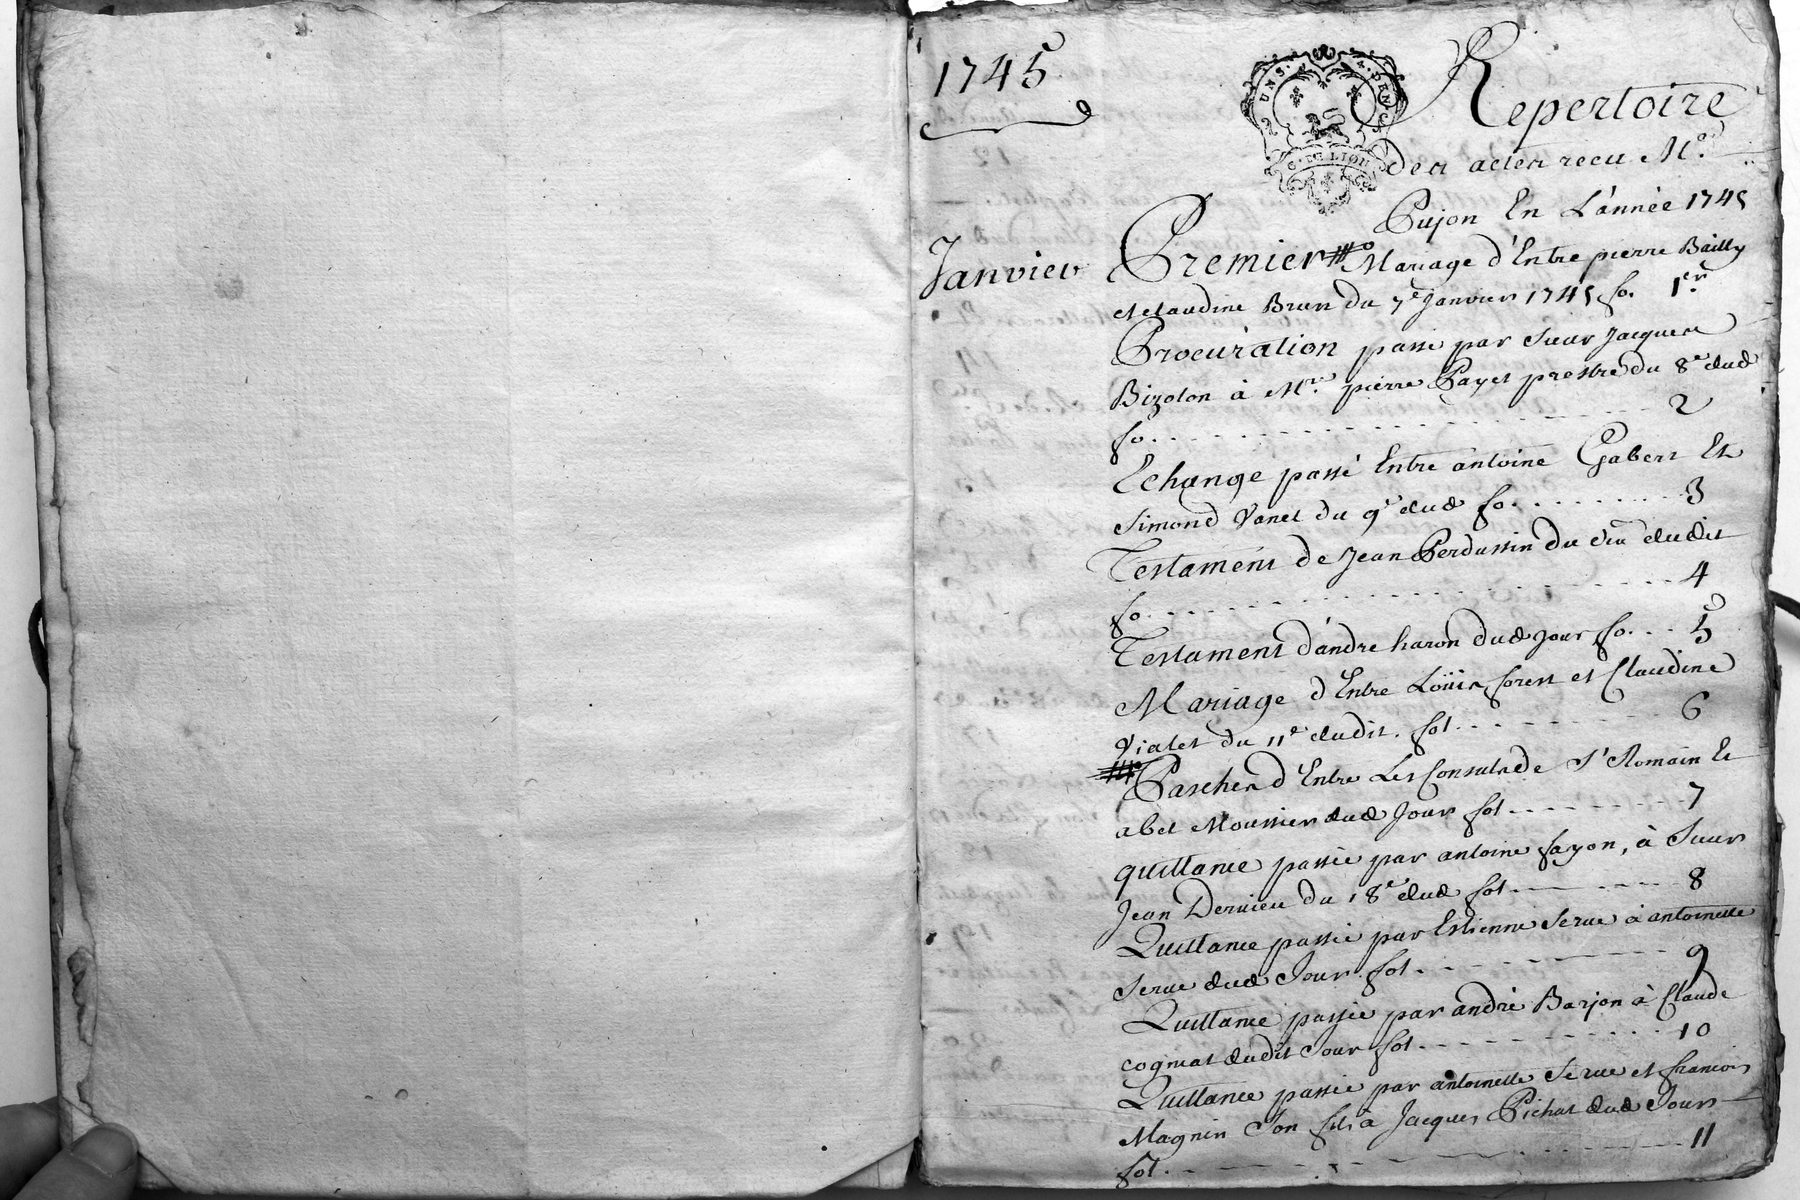 1745
2 UNS. 4. DEN
G. DE LION
Repertoire
Des actes recu Me.
Pujon En L'année 1745
Janvier
Premier Mariage d'Entre pierre Bailly
et claudine Brun du 7e Janvier 1745 fo. 1er
Procuration passé par Sieur Jacques
Bizolon à Mre. pierre Payet prestre du 8e dud
fo. 2
Echange passé Entre antoine Gabert Et
Simond Vanel du 9e dud fo. 3
Testament de Jean Perdussin du dudit
fo. 4
Testament d'andre haron dud jour fo. 5
Mariage d'Entre Loüis forest et Claudine
Vialet du 11e dudit. fol. 6
Pasches d'Entre Les Consuls de St Romain Et
abel Moussier dud Jour fol. 7
quittance passée par antoine fayon, à Sieur
Jean Dervieu du 18e dud fol. 8
Quittance passée par Estienne Serve à antoinette
Serve dud Jour. fol. 9
Quittance passée par andré Barjon à Claude
cogniat dudit Jour fol. 10
Quittance passée par antoinette Serve et francois
Magnin Son fils à Jacques Pichat dud Jour
fol. 11